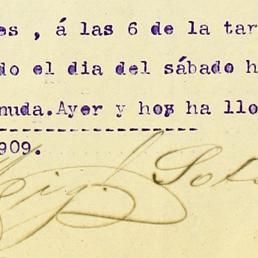 es , á las 6 de la tar
do el dia del sábado h
nuda.Ayer y hoy ha llo
909.